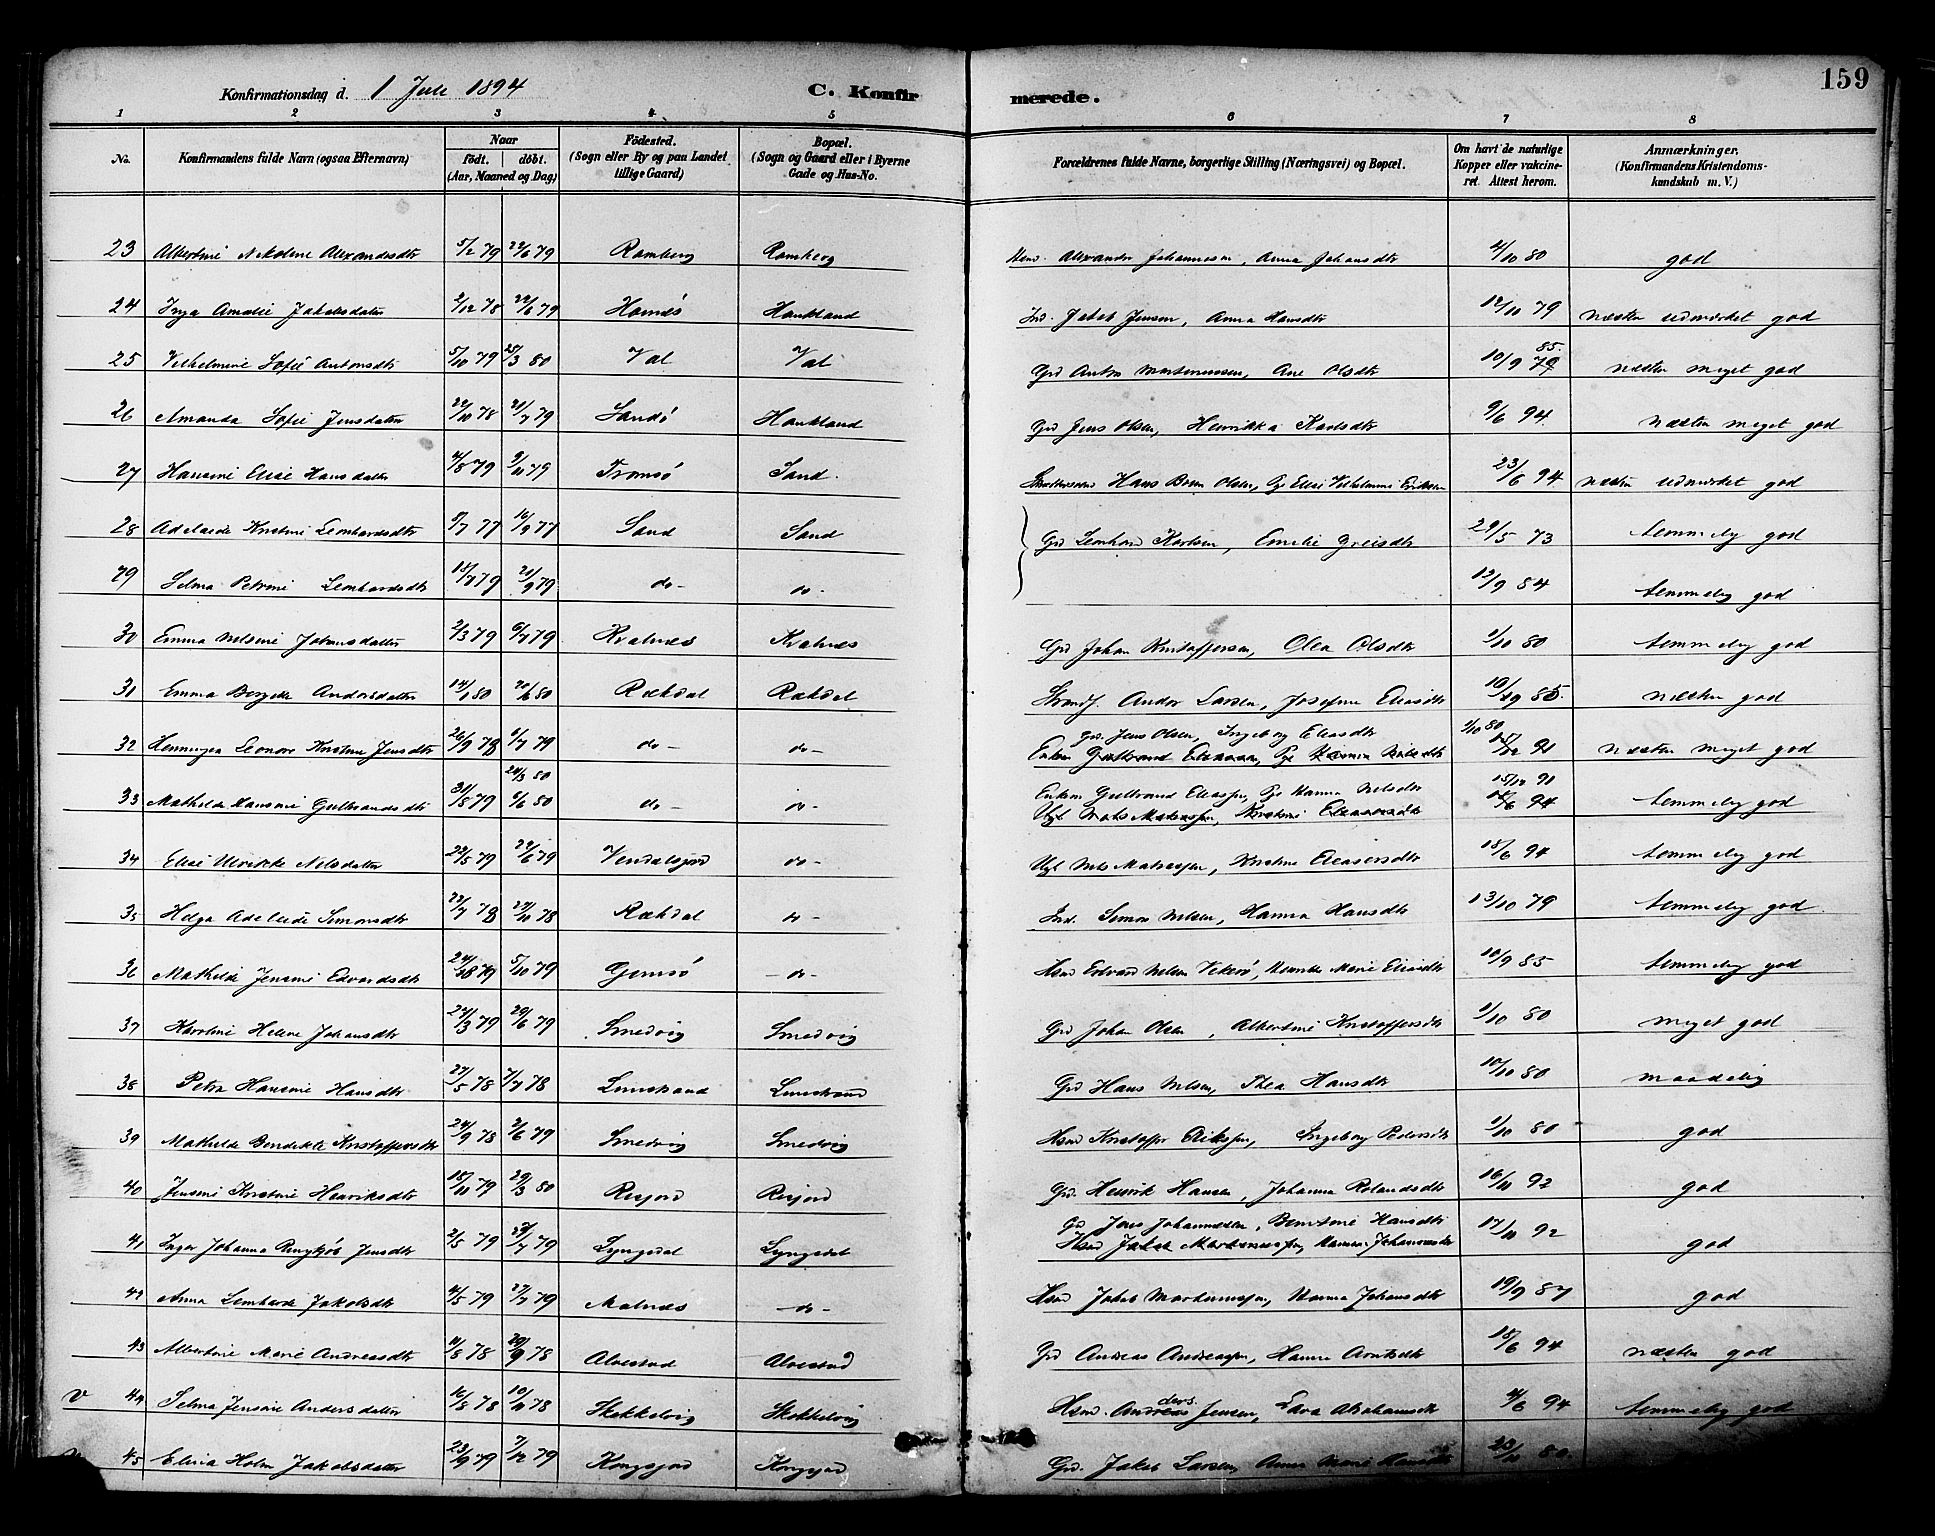 159
Konfirmationsdag d. 1 Juli 1894 C. Konfirmerede.
1 2 3 4 5 6 7 8
No. Konfirmandens fulde Navn (ogsaa Efternavn) Naar født. døbt. (Aar, Maaned og Dag) Födested. (Sogn eller By og paa Landet tillige Gaard) Bopæl. (Sogn og Gaard eller i Byerne Gade og Hus-No. Forældrenes fulde Navne, borgerlige Stilling (Næringsvei) og Bopæl. Om havt de naturlige Kopper eller vakcineret. Attest herom. Anmærkninger. (Konfirmandens Kristendomskundskab m. V.)
23 Albertine Nikoline Alexandersdtr 5/2 79 22/6 79 Ramberg Ramberg Alexander Johannesen, Anna Johansdtr 4/10 80 god
24 Inga Amalie Jakobsdatter 2/12 78 22/6 79 Hornsö Haukland Ind. Jakob Jensen, Anna Hansdtr 12/10 79 næsten udmærket god
25 Vilhelmine Sofie Antonsdtr 5/10 79 25/3 80 Val Val Grd Anton Martinussen, Ane Olsdtr 10/9 79 85. næsten meget god
26 Amanda Sofie Jensdatter 22/10 78 21/7 79 Sandö Haukland Grd Jens Olsen, Henrikka Karlsdtr 9/6 94 næsten meget god
27 Hansine Elise Hansdatter 4/8 79 9/11 79 Tromsö Sand Hans Olsen, Pge Elise Vilhelmine Eriksen 23/6 94 næsten udmærket god
28 Adelaide Kristine Leonhardsdtr 5/7 77 16/9 77 Sand Sand Grd Leonhard Karlsen, Emelie Greisdtr 29/5 73 temmelig god
29 Selma Petrine Leonhardsdtr 18/7 79 21/9 79 do- do- 12/9 84 temmelig god
30 Emma Nilsine Johansdatter 2/3 79 6/7 79 Kvalnes Kvalnes Grd Johan Kristoffersen, Olea Olsdtr 1/10 80 temmelig god
31 Emma Bergitte Andorsdatter 14/1 80 20/6 80 Rækdal Rækdal Strands. Andor Larsen, Josefine Eliasdtr 10/9 85. næsten god
32 Henningea Leonore Kristine Jensdtr 26/9 78 6/7 79 do- do- Grd. Jens Olsen, Ingeborg Eliasdtr 1/10 80
næsten meget god
33 Mathilde Hansine Gulbrandsdtr 31/8 79 21/3 80 6/6 80 do- do- Enkem Gulbrand Eliassen, Pge Hanna Nilsdtr 15/12 91 temmelig god
34 Elise Ulrikke Nilsdatter 22/5 79 22/6 79 Vendalsjord do- Ugl Nils Matiassen, Kristine Eleasersdtr 18/6 94 temmelig god
35 Helga Adelaide Simonsdtr 22/7 78 24/11 78 Rækdal do- Ind. Simon Nilsen, Hanna Hansdtr 13/10 79 temmelig god
36 Mathilde Jensine Edvardsdtr 79 5/10 79 Gimsö -do- Hsmd Edvard Nilsen, Marie Eliasdtr 10/9 85 temmelig god
37 Karoline Helene Johansdtr 24/3 79 29/6 79 Smedvig Smedvig Grd Johan Olsen, Albertine Kristoffersdtr 1/10 80 meget god
38 Petra Hansine Hansdtr 27/5 78 7/7 78 Limstrand Limstrand Grd Hans Nilsen, Thea Hansdtr 10/10 80 maadelig
39 Mathilde Bendikte Kristoffersdtr 24/9 78 2/6 79 Smedvig Smedvig Hsmd Kristoffer Eliassen, Ingeborg Pedersdtr 1/10 80 god
40 Jensine Kristine Henriksdtr 18/11 79 29/3 80 Resjord Resjord Grd. Henrik Hansen, Johanna Rolandsdtr 16/11 92 god
41 Inger Johanna Jensdtr 2/5 79 27/7 79 Lyngedal Lyngedal Gd Jens Johannessen, Hansdtr 17/11 92 god
42 Anna Leonharde Jakobsdtr 4/5 79 27/7 79 Malnes -do- Hsmd Jakob Martinussen, Hanna Johansdtr 19/9 87 god
43 Albertine Marie Andreasdtr 11/8 78 29/9 78 Alvestad Alvestad Grd Andreas Andreassen, Hanna Arntsdtr 18/6 94 næsten god
V 44 Selma Jensine Andersdatter 16/8 78 10/11 78 Skokkelvig Skokkelvig Hsmd. Anders Jensen, Sara Abrahamsdtr 4/6 94 temmelig god
45 Elevia Holm Jakobsdatter 23/9 79 7/12 79 Kongsjord Kongsjord Grd. Jakob Larsen, Anne Marie Hansdtr 23/11 80.